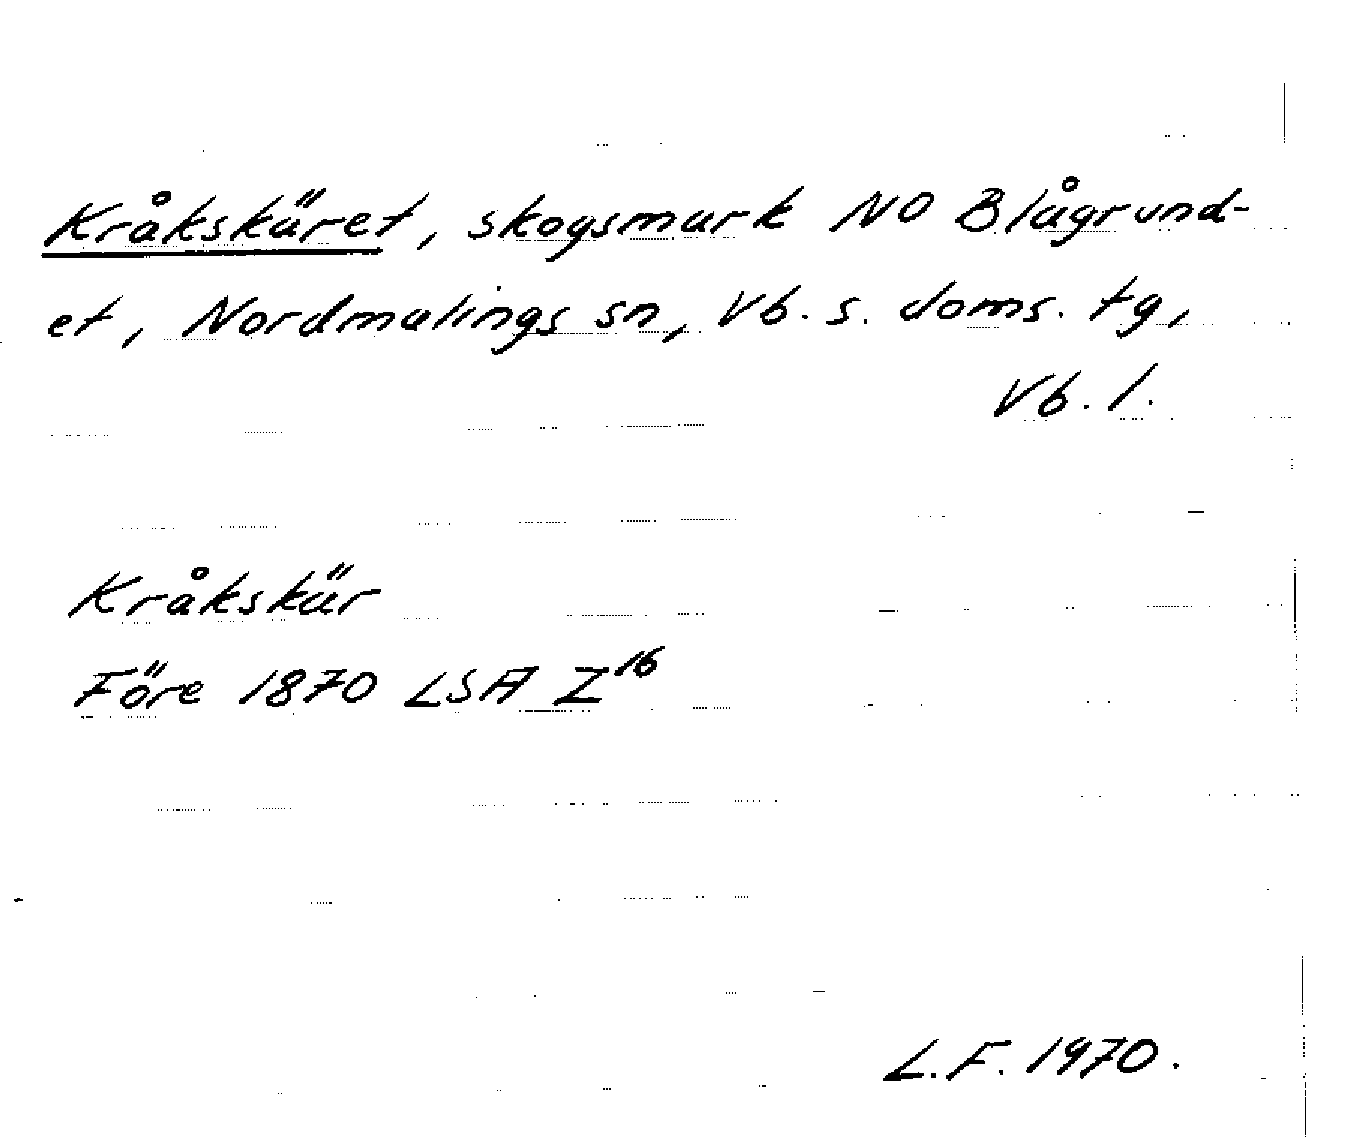 Kråkskäret, skogsmark NO Blågrund-
et, Nordmalings sn, Vb. s. doms. tg,
Vb. l.
Kråkskär
Före 1870 LSA Z16
L.F. 1970.